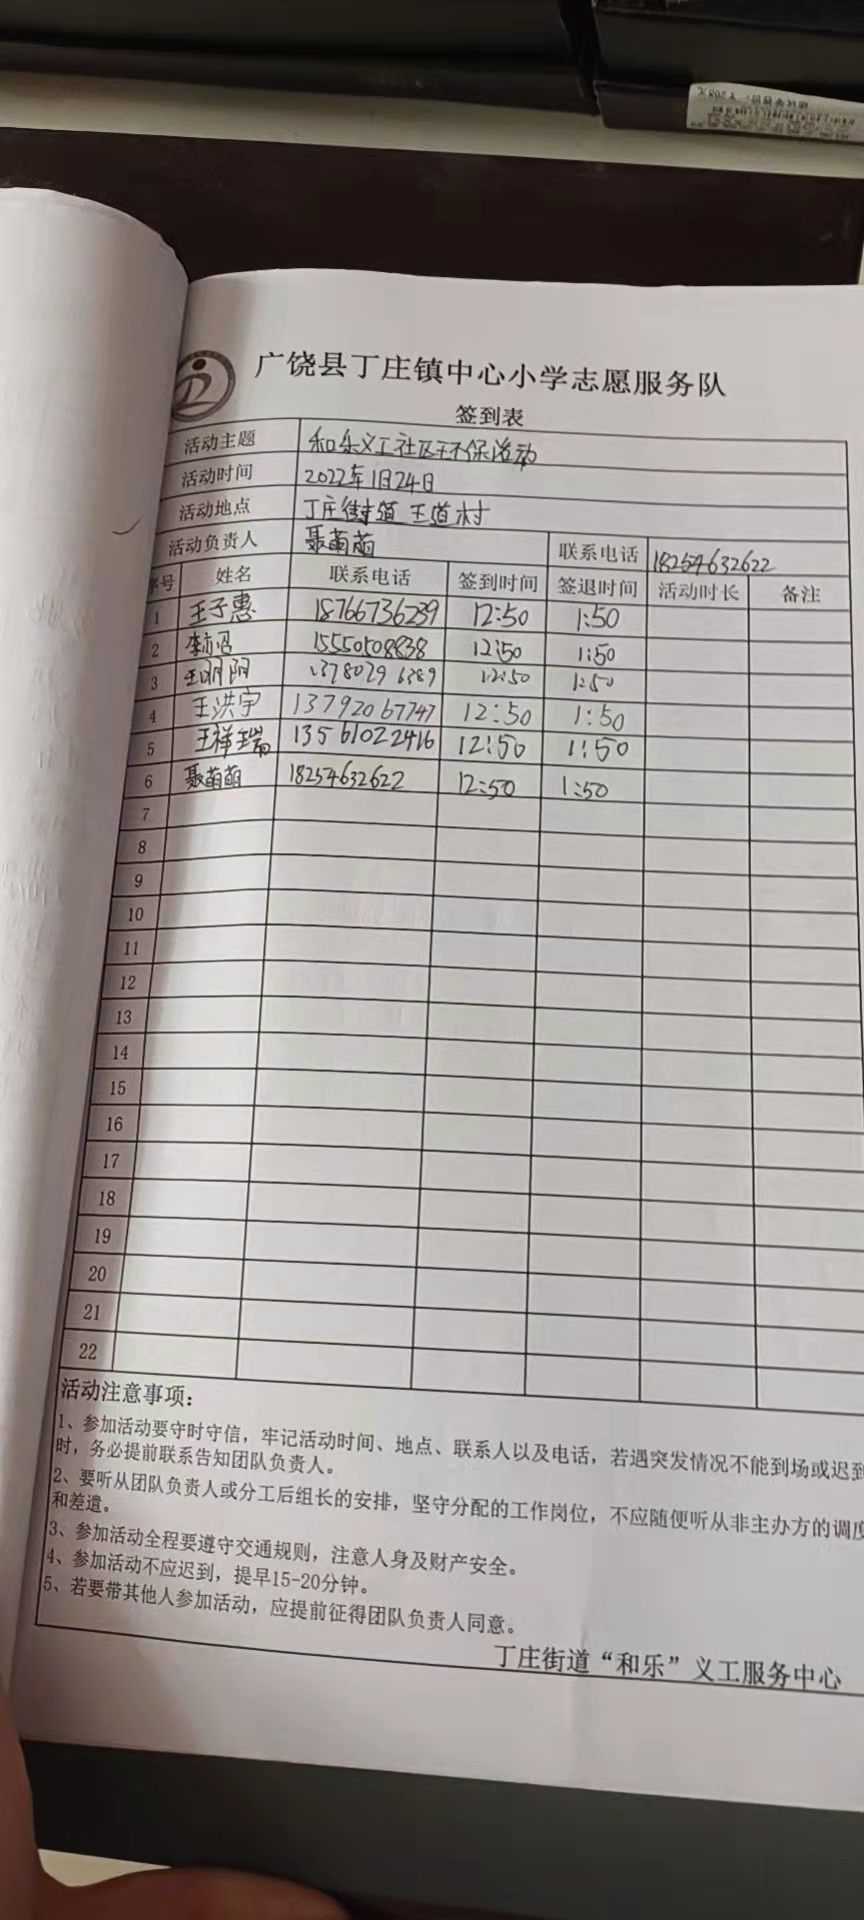 广饶县丁庄镇中心小学志愿服务队
签到表
活动主题 和乐义工社区环保活动
活动时间 2022年1月24日
活动地点 丁庄街道 王道村
活动负责人 聂萌萌 联系电话 18254632622
序号 姓名 联系电话 签到时间 签退时间 活动时长 备注
1 王子惠 18766736239 12:50 1:50
2 15550508838 12:50 1:50
3 王明阳 13780796389 12:50 1:50
4 王洪宇 13792067747 12:50 1:50
5 王祥瑞 13561022416 12:50 1:50
6 聂萌萌 18254632622 12:50 1:50
7
8
9
10
11
12
13
14
15
16
17
18
19
20
21
22
活动注意事项：
1、参加活动要守时守信，牢记活动时间、地点、联系人以及电话，若遇突发情况不能到场或迟到
时，务必提前联系告知团队负责人。
2、要听从团队负责人或分工后组长的安排，坚守分配的工作岗位，不应随便听从非主办方的调度
和差遣。
3、参加活动全程要遵守交通规则，注意人身及财产安全。
4、参加活动不应迟到，提早15-20分钟。
5、若要带其他人参加活动，应提前征得团队负责人同意。
丁庄街道“和乐”义工服务中心